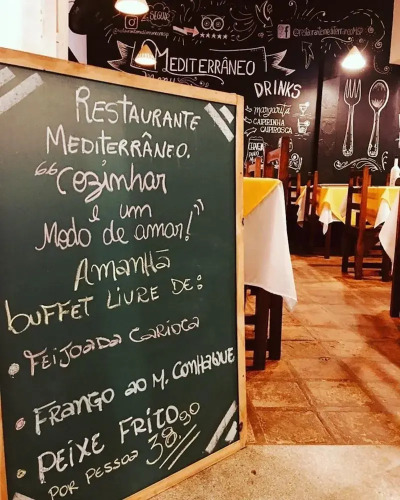 RESTAURANTE
MEDITERRÂNEO.
"Cozinhar
é um
Modo de amar!"
Amanhã
BUFFET LIVRE DE:
FEIJOADA CARIOCA
FRANGO AO M. CONHAQUE
PEIXE FRITO
POR PESSOA 38,90
MEDITERRÂNEO
DRINKS
margarita
CAIPIRINHA
CAIPIROSCA